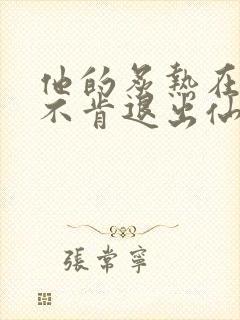 他的炙熱在
不肯退出仙
張常寧